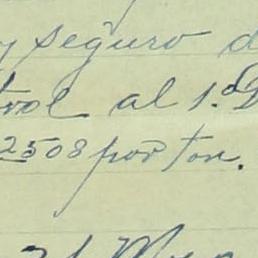 y seguro d
trol al 1.º D
2508 por ton.